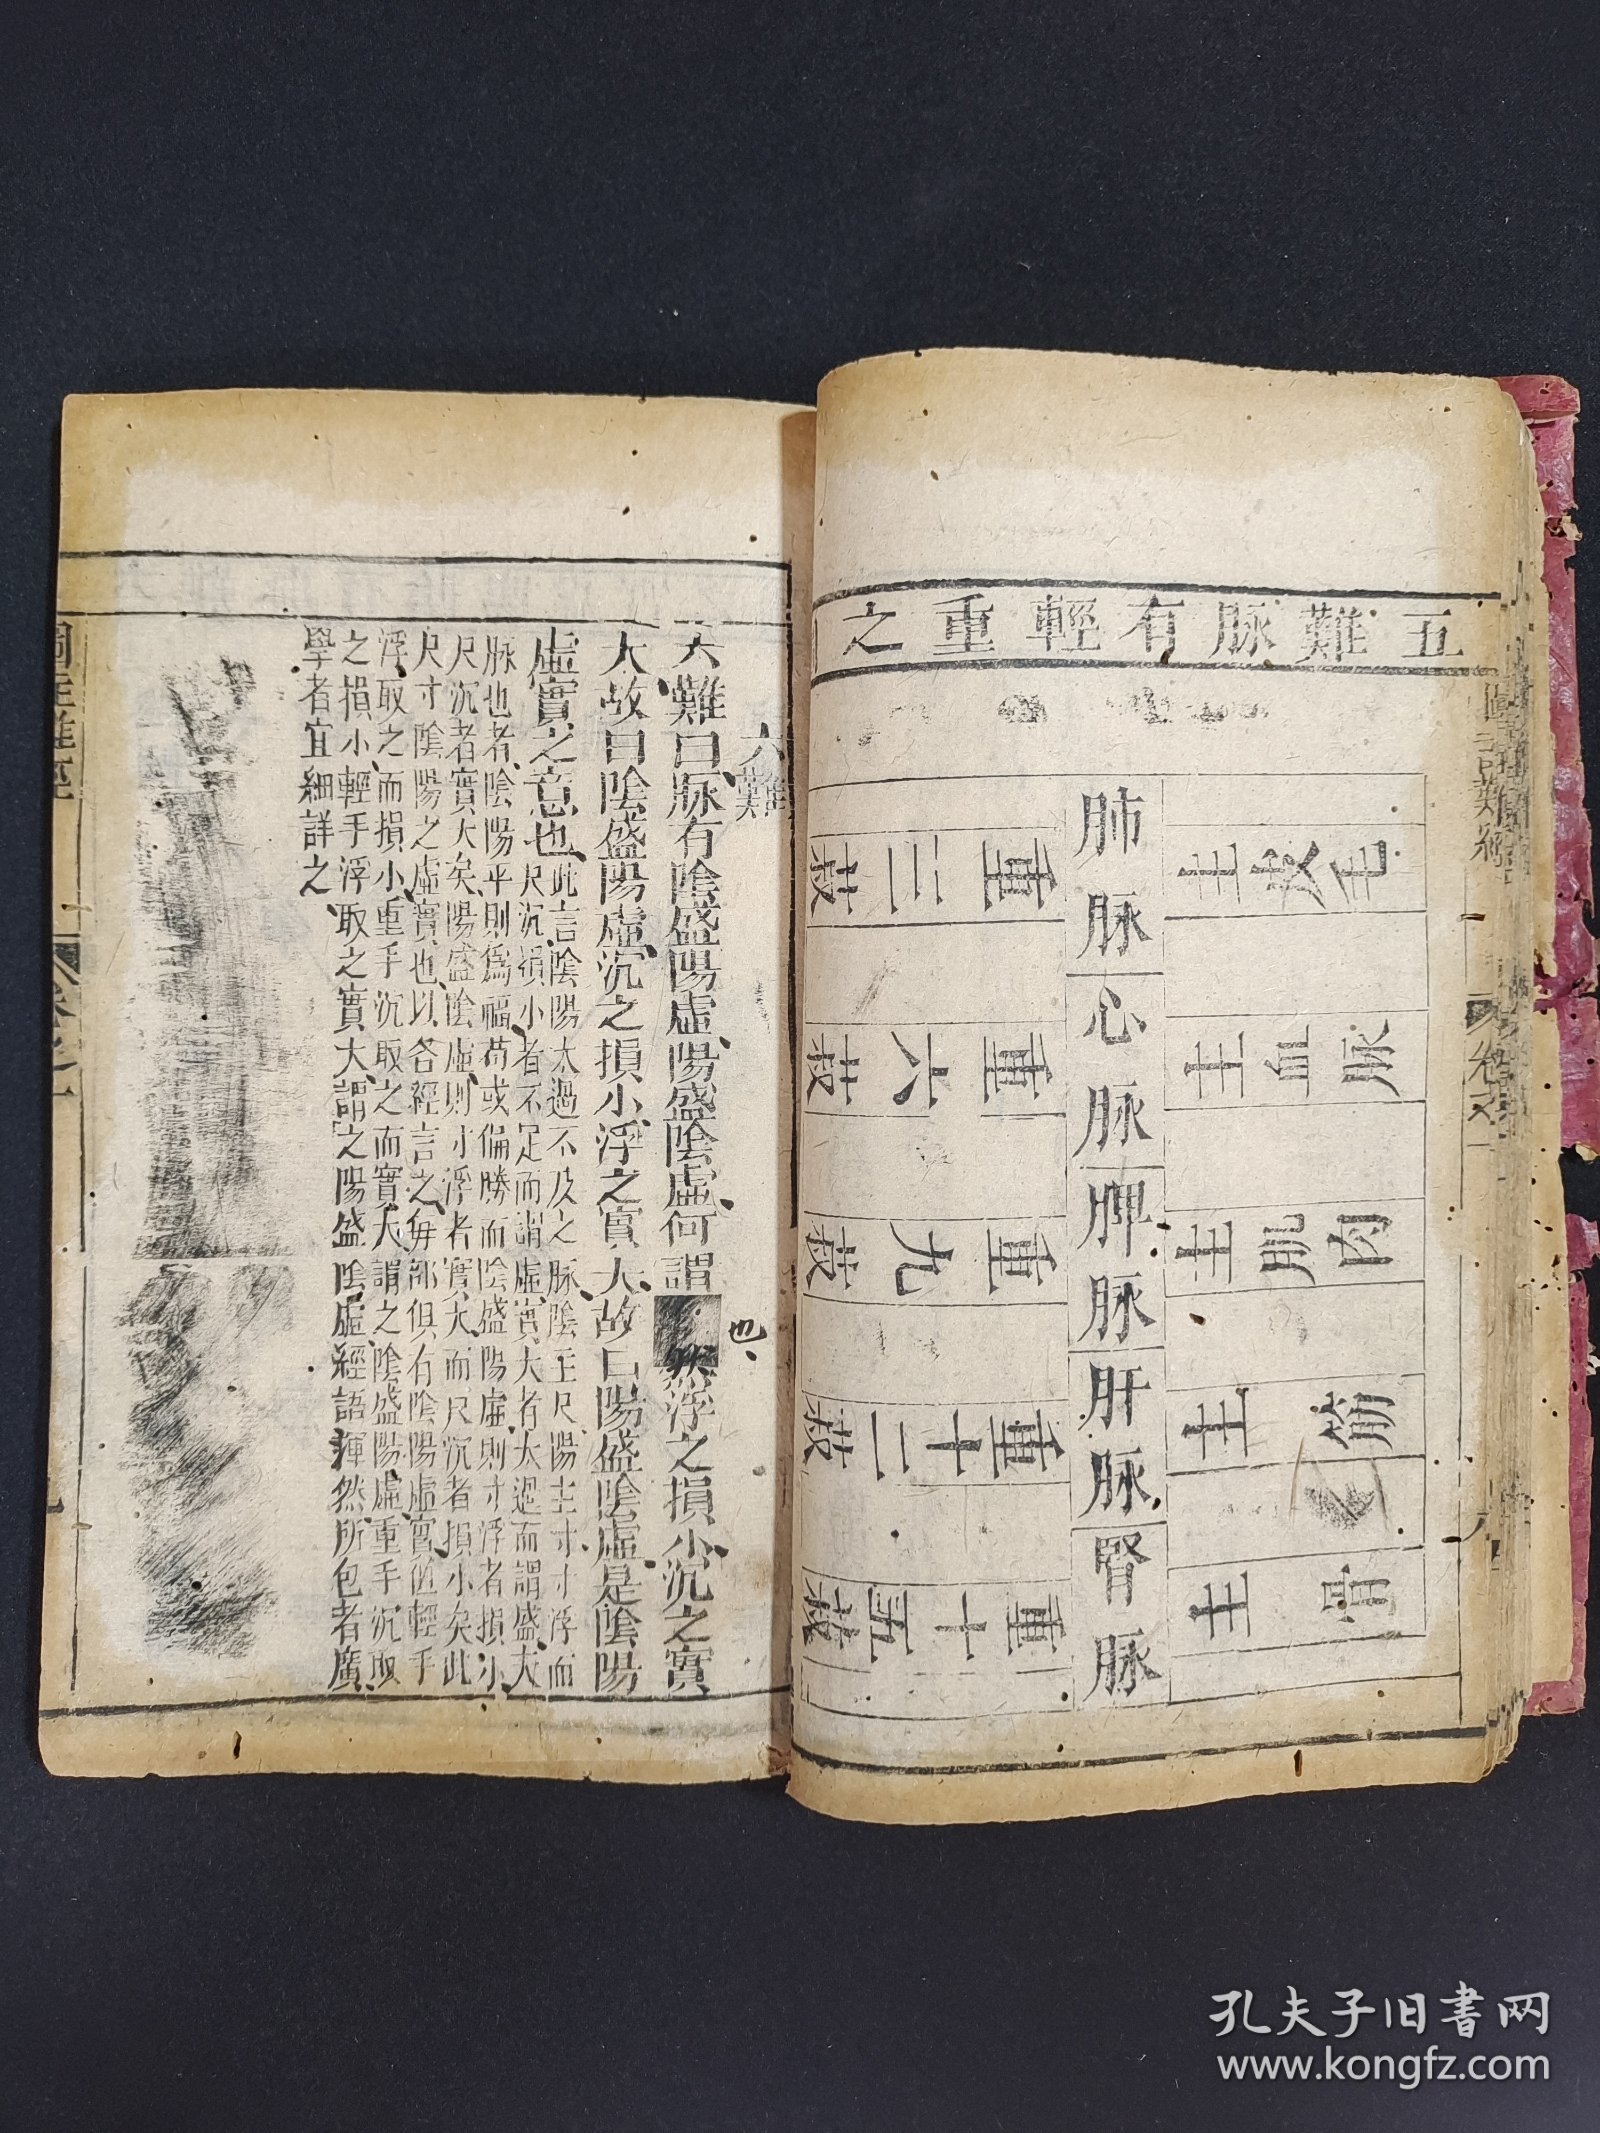 五難脉有輕重之
肺脉
心脉
脾脉
肝脉
腎脉
主皮毛
主血脉
主肌肉
主筋
主骨
重三菽
重六菽
重九菽
重十二菽
重十五菽
六難
六難曰脉有陰盛陽虛陽盛陰虛何謂
也
然浮之損小沉之實
大故曰陰盛陽虛沉之損小浮之實大故曰陽盛陰虛是陰陽
虛實之意也
此言陰陽太過不及之脉陰主尺陽主寸寸浮而
尺沉損小者不足而謂虛實大者太過而謂盛夫
脉也者陰陽平則爲福苟或偏勝而陰盛陽虛則寸浮者損小
尺沉者實大矣陽盛陰虛則寸浮者實大而尺沉者損小矣此
尺寸陰陽之虛實也以各經言之每部俱有陰陽虛實值輕手
浮取之而損小重手沉取之而實大謂之陰盛陽虛重手沉取
之損小輕手浮取之實大謂之陽盛陰虛經語渾然所包者廣
學者宜細詳之
圖註難經
卷之一
孔夫子旧书网
www.kongfz.com